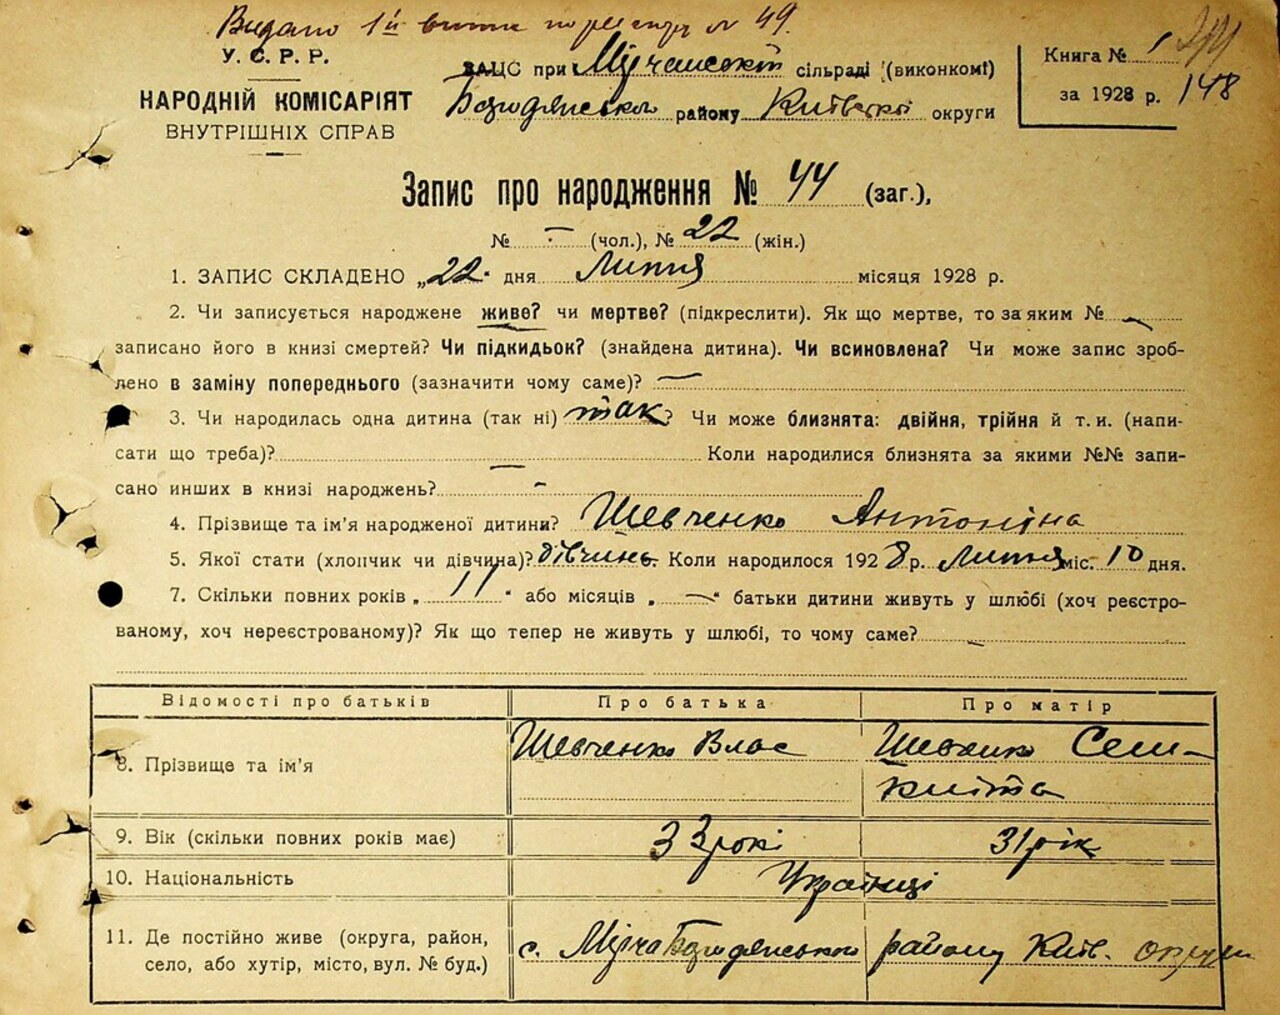 Видано 1й витяг по реєстру № 49.
У. С. Р. Р.
НАРОДНІЙ КОМІСАРІЯТ
ВНУТРІШНІХ СПРАВ
ЗАЦС при Мирчанській сільраді (виконкомі)
Бородянського району Київської округи
Книга №
за 1928 р. 148
Запис про народження № 44 (заг.),
№ - (чол.), № 22 (жін.)
1. ЗАПИС СКЛАДЕНО „22" дня Липня місяця 1928 р.
2. Чи записується народжене живе? чи мертве? (підкреслити). Як що мертве, то за яким № -
записано його в книзі смертей? Чи підкидьок? (знайдена дитина). Чи всиновлена? Чи може запис зроб-
лено в заміну попереднього (зазначити чому саме)? —
3. Чи народилась одна дитина (так ні) так? Чи може близнята: двійня, трійня й т. и. (напи-
сати що треба)? — Коли народилися близнята за якими №№ запи-
сано инших в книзі народжень? -
4. Прізвище та ім'я народженої дитини? Шевченко Антоніна
5. Якої стати (хлопчик чи дівчина)? дівчина. Коли народилося 1928 р. Липня міс. 10 дня.
7. Скільки повних років „ 11 " або місяців „ — " батьки дитини живуть у шлюбі (хоч реєстро-
ваному, хоч нереєстрованому)? Як що тепер не живуть у шлюбі, то чому саме? -
Відомості про батьків Про батька Про матір
8. Прізвище та ім'я Шевченко Влас Шевченко Сем-
кита
9. Вік (скільки повних років має) 33 рокі 31 рік
10. Національність Українці
11. Де постійно живе (округа, район, село, або хутір, місто, вул. № буд.) с. Мирча Бородянського району Київ. округи